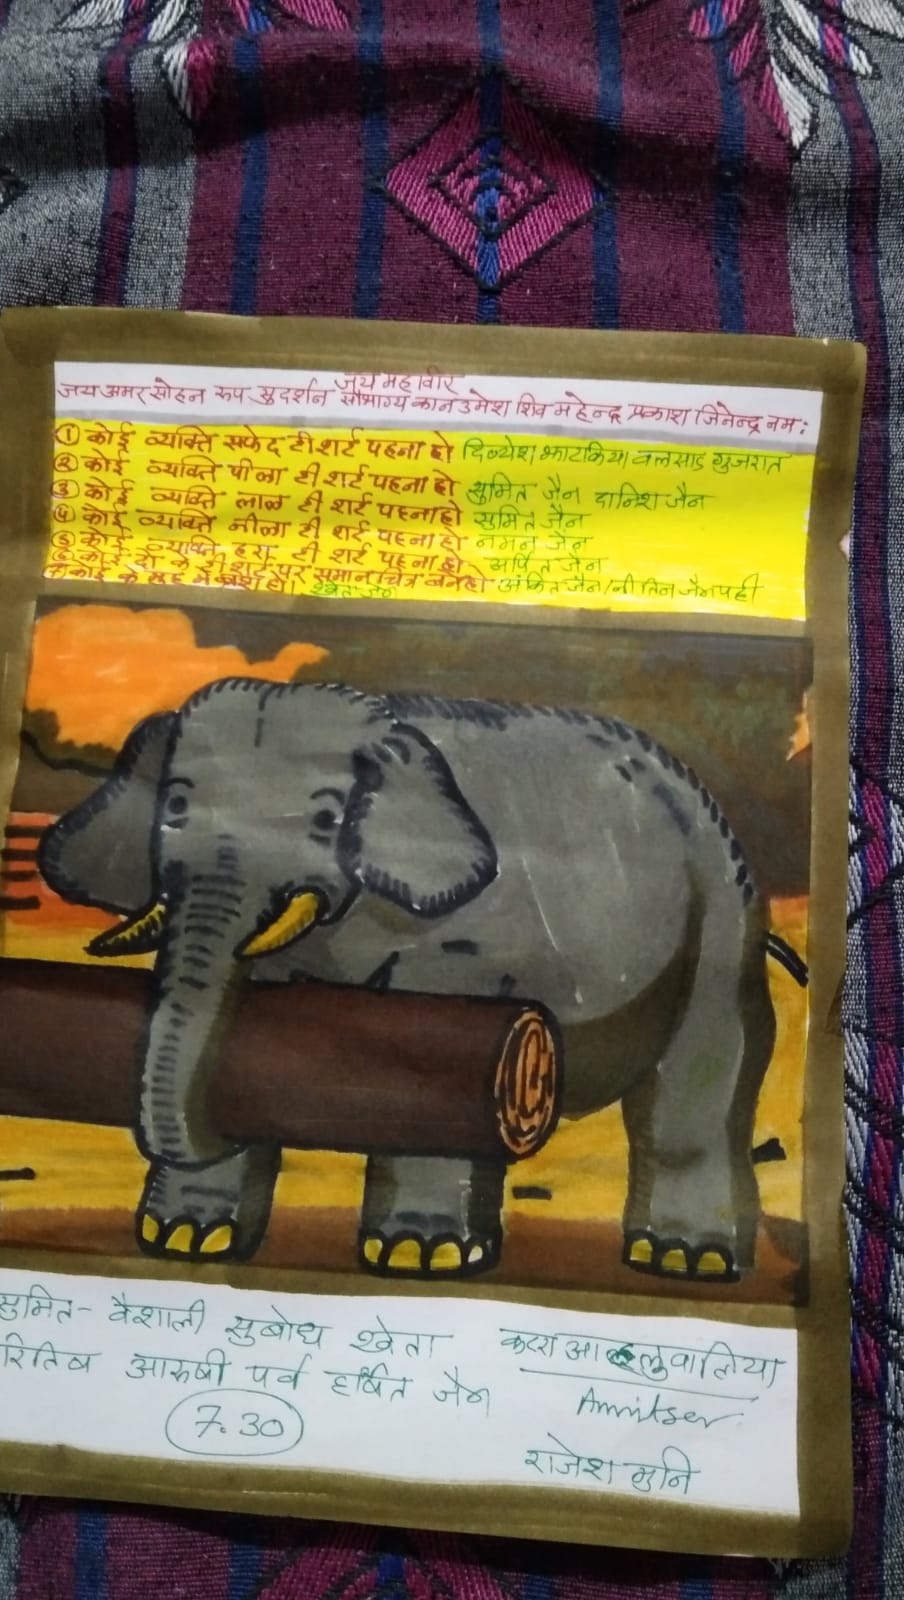 जय महावीर
जय अमर सोहन रूप सुदर्शन सौभाग्य कान उमेश शिव महेन्द्र प्रकाश जिनेन्द्र नमः
① कोई व्यक्ति सफेद टी शर्ट पहना हो दिव्येश भाटकिया वलसाड गुजरात
② कोई व्यक्ति पीला टी शर्ट पहना हो सुमित जैन दानिश जैन
③ कोई व्यक्ति लाल टी शर्ट पहना हो सुमित जैन
④ कोई व्यक्ति नीला टी शर्ट पहना हो नमन जैन
⑤ कोई व्यक्ति हरा टी शर्ट पहना हो अर्पित जैन
⑥ कोई दो के टी शर्ट पर समान चित्र बने हो अंकित जैन/नीतिन जैन
कोई के मुंह में हो श्वेता जैन
सुमित - वैशाली सुबोध श्वेता
रितिव आरुषी पर्व हर्षित जैन
7.30
कटरा आहलुवालिया
Amritser
राजेश मुनि